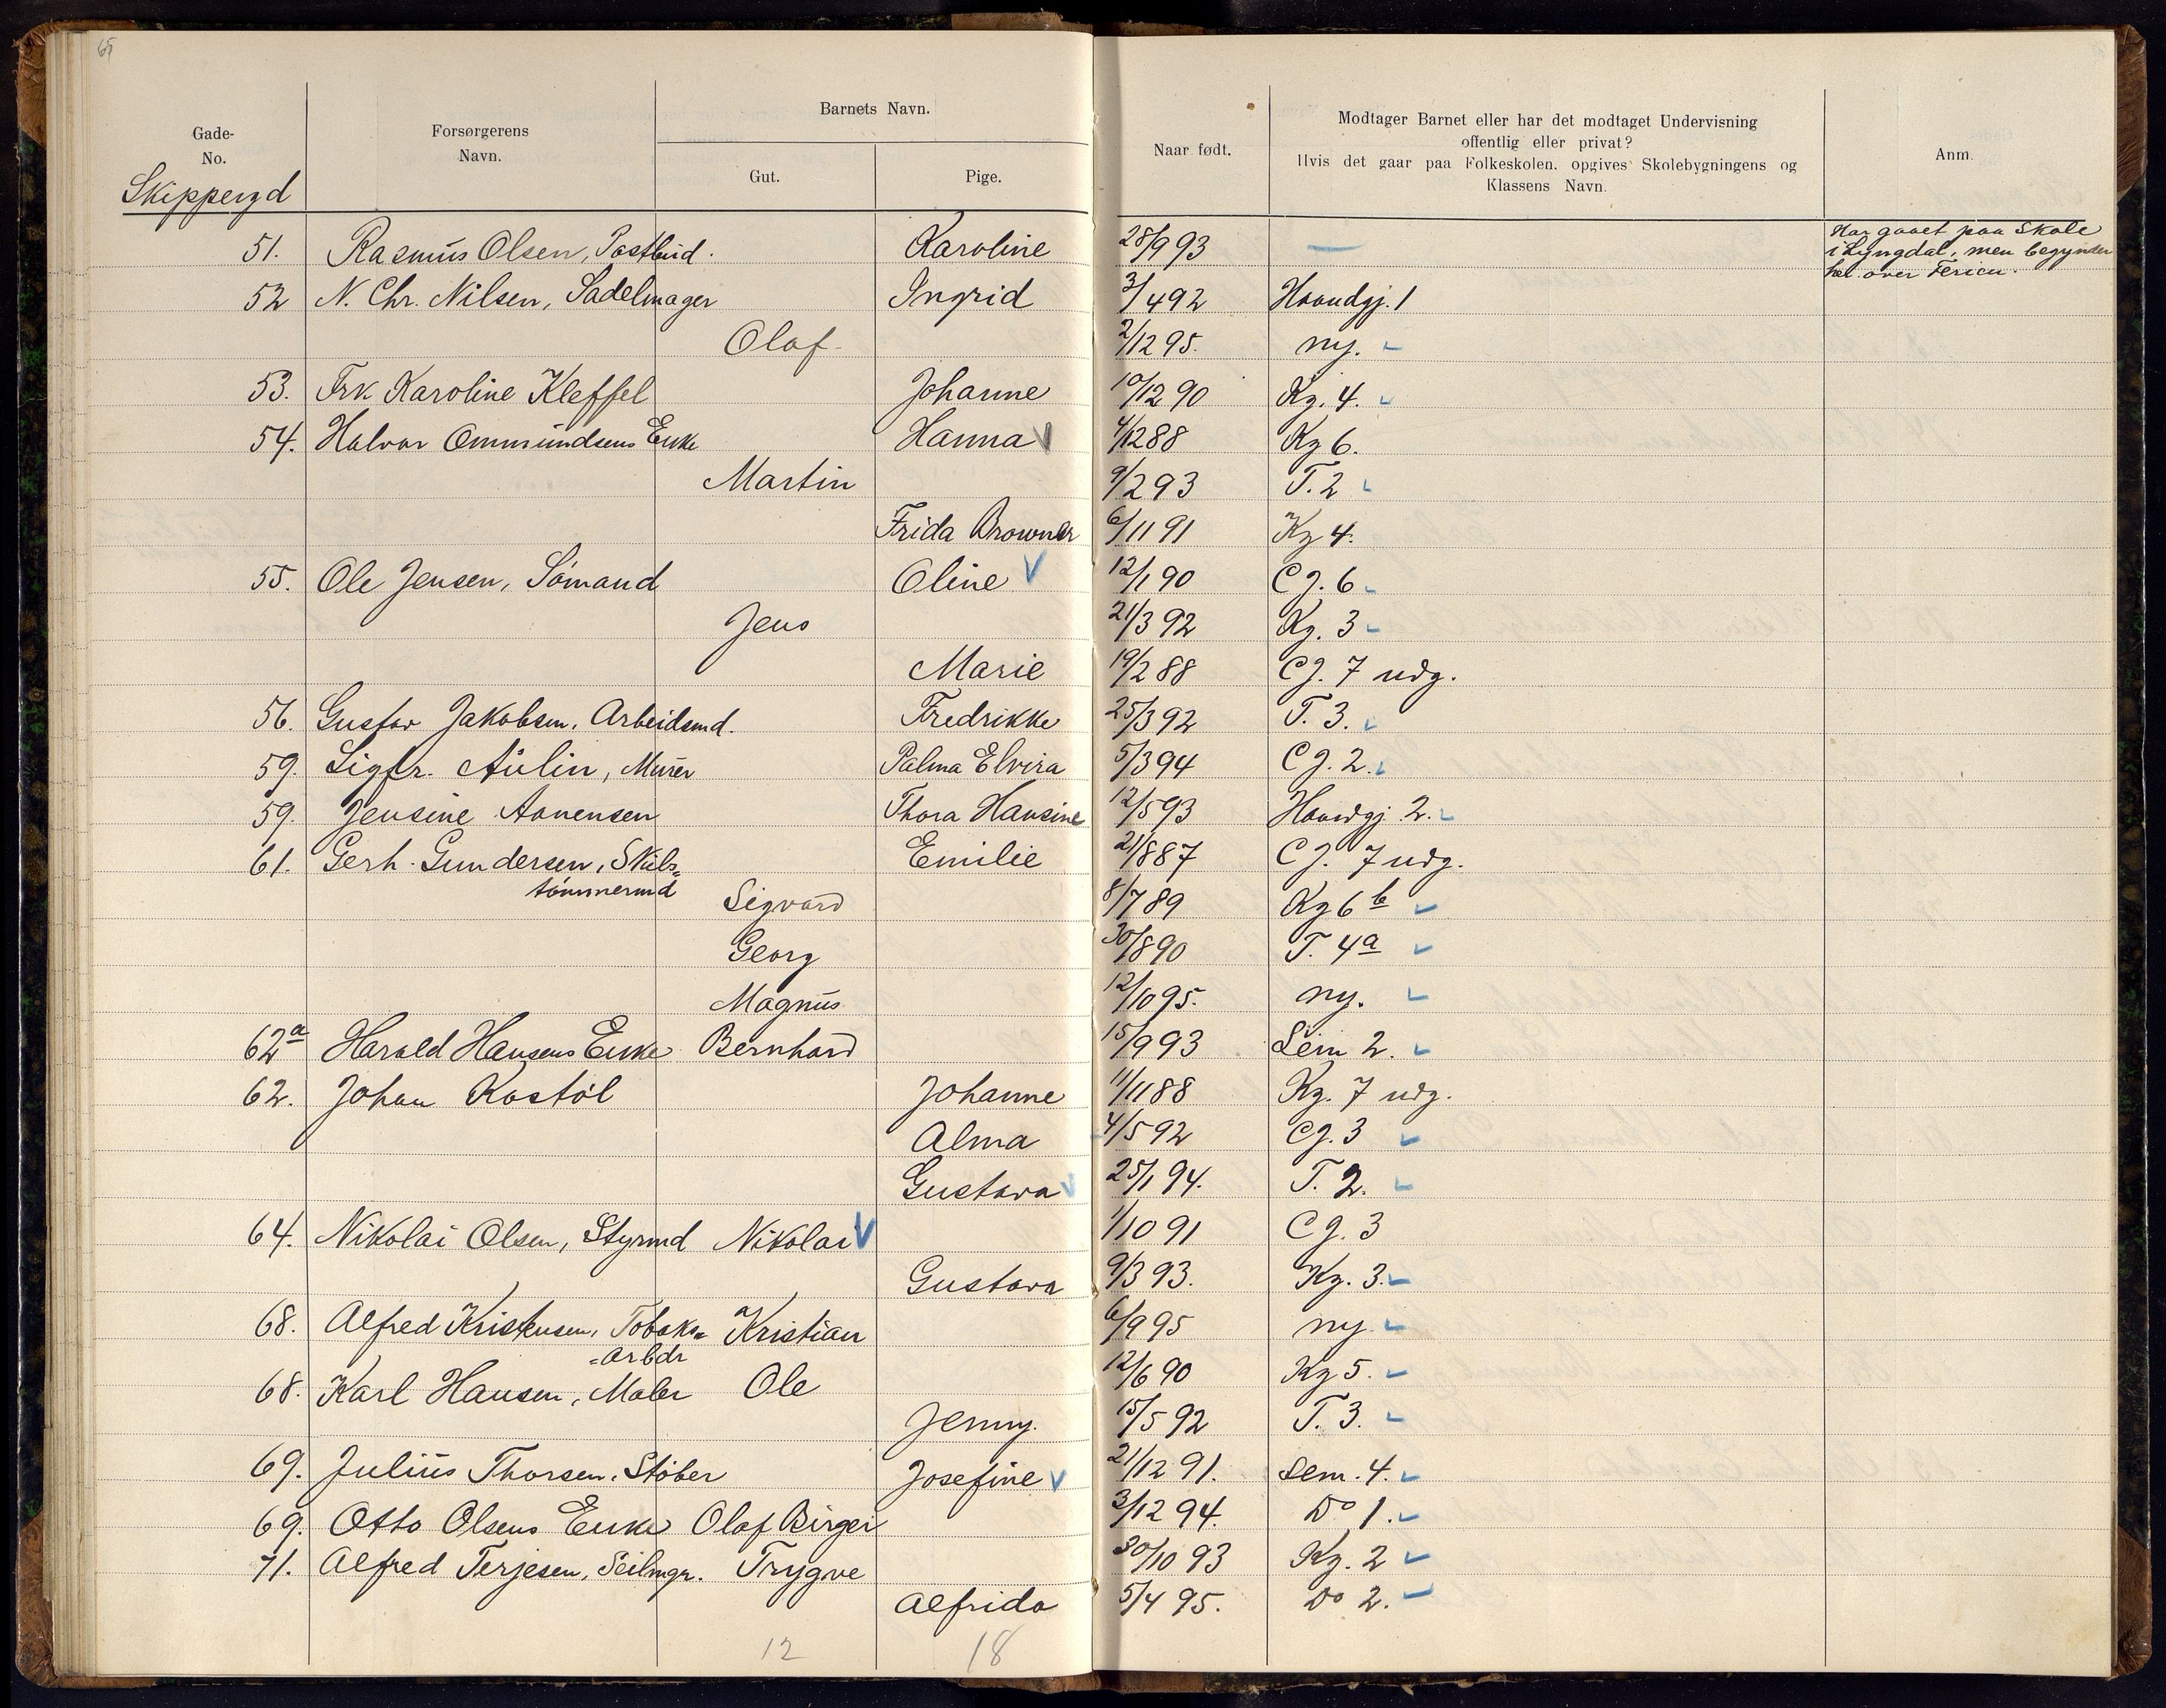 65
Gade-
No.
Forsørgerens
Navn.
Barnets Navn.
Gut.
Pige.
Naar født.
Modtager Barnet eller har det modtaget Undervisning
offentlig eller privat?
Hvis det gaar paa Folkeskolen, opgives Skolebygningens og
Klassens Navn.
Anm.
Skippergd
51. Rasmus Olsen, Postbud. Karoline 28/9 93 — Har gaaet paa Skole
i Lyngdal, men begynder
her over Ferien.
52 N. Chr. Nilsen, Sadelmager Ingrid 3/4 92 Haandgj. 1
Olaf 2/12 95. ny.
53. Frk. Karoline Kleffel Johanne 10/12 90 Kg. 4.
54. Halvor Ommundsens Enke Hanna 4/12 88 Kg 6.
Martin 9/2 93 T. 2
Frida Browner 6/11 91 Kg 4.
55. Ole Jensen, Sømand Oline 12/1 90 CJ. 6
Jens 21/3 92 Kg. 3
Marie 19/2 88 CJ. 7 udg.
56. Gustav Jakobsen, Arbeidsmd. Fredrikke 25/3 92 T. 3.
59. Sigfr. Aulin, Murer Palma Elvira 5/3 94 CJ. 2.
59. Jensine Aanensen Thora Hansine 12/5 93 Haandgj 2.
61. Gerh. Gundersen, Skibs=
tømmermd Emilie 21/8 87 CJ. 7 udg.
Sigvard 8/7 89 Kg 6 b
Georg 30/8 90 T. 4a
Magnus 12/10 95. ny.
62a Harald Hansens Enke Bernhard 15/9 93 Sem 2.
62. Johan Rostøl Johanne 11/11 88 Kg. 7 udg.
Alma 4/5 92 CJ. 3
Gustava 25/1 94. T. 2.
64. Nikolai Olsen, Styrmd Nikolai 1/10 91 CJ. 3
Gustava 9/3 93. Kg. 3.
68. Alfred Kristensen, Tobaks=
=Arbdr Kristian 6/9 95 ny.
68. Karl Hansen, Maler Ole 12/6 90 Kg 5.
Jenny. 15/5 92 T. 3.
69. Julius Thorsen, Støber Josefine 21/12 91. Sem. 4.
69. Otto Olsens Enke Olaf Birger 3/12 94. Do 1.
71. Alfred Terjesen, Seilmgr. Trygve 30/10 93 Kg. 2
Alfrida 5/4 95. Do 2.
12 18